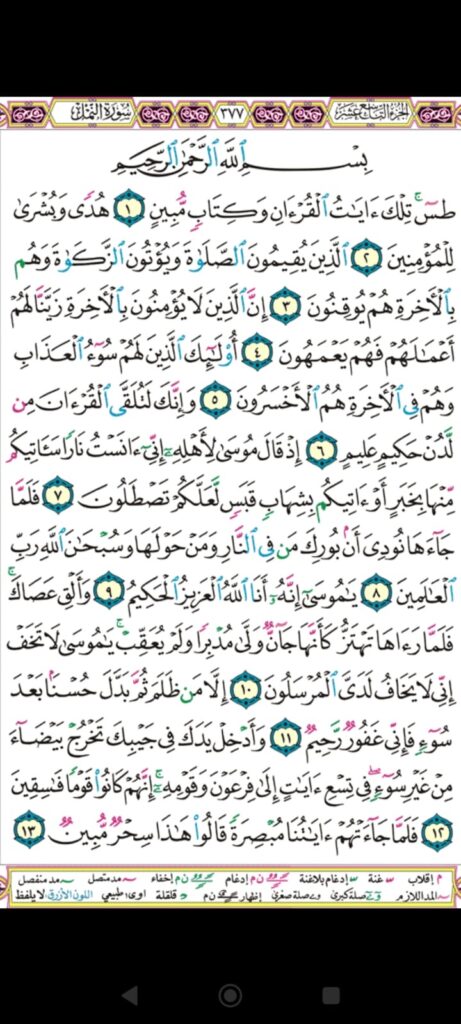 الجزء التاسع عشر ٣٧٧ سورة النمل
بِسْمِ ٱللَّهِ ٱلرَّحْمَٰنِ ٱلرَّحِيمِ
طسٓۚ تِلْكَ ءَايَٰتُ ٱلْقُرْءَانِ وَكِتَابٍ مُّبِينٍ ١ هُدًى وَبُشْرَىٰ
لِلْمُؤْمِنِينَ ٢ ٱلَّذِينَ يُقِيمُونَ ٱلصَّلَوٰةَ وَيُؤْتُونَ ٱلزَّكَوٰةَ وَهُم
بِٱلْأَخِرَةِ هُمْ يُوقِنُونَ ٣ إِنَّ ٱلَّذِينَ لَا يُؤْمِنُونَ بِٱلْأَخِرَةِ زَيَّنَّا لَهُمْ
أَعْمَٰلَهُمْ فَهُمْ يَعْمَهُونَ ٤ أُو۟لَٰٓئِكَ ٱلَّذِينَ لَهُمْ سُوٓءُ ٱلْعَذَابِ
وَهُمْ فِى ٱلْأَخِرَةِ هُمُ ٱلْأَخْسَرُونَ ٥ وَإِنَّكَ لَتُلَقَّى ٱلْقُرْءَانَ مِن
لَّدُنْ حَكِيمٍ عَلِيمٍ ٦ إِذْ قَالَ مُوسَىٰ لِأَهْلِهِۦٓ إِنِّىٓ ءَانَسْتُ نَارًا سَـَٔاتِيكُم
مِّنْهَا بِخَبَرٍ أَوْ ءَاتِيكُم بِشِهَابٍ قَبَسٍ لَّعَلَّكُمْ تَصْطَلُونَ ٧ فَلَمَّا
جَآءَهَا نُودِىَ أَنۢ بُورِكَ مَن فِى ٱلنَّارِ وَمَنْ حَوْلَهَا وَسُبْحَٰنَ ٱللَّهِ رَبِّ
ٱلْعَٰلَمِينَ ٨ يَٰمُوسَىٰٓ إِنَّهُۥٓ أَنَا ٱللَّهُ ٱلْعَزِيزُ ٱلْحَكِيمُ ٩ وَأَلْقِ عَصَاكَۚ
فَلَمَّا رَءَاهَا تَهْتَزُّ كَأَنَّهَا جَآنٌّ وَلَّىٰ مُدْبِرًا وَلَمْ يُعَقِّبْۚ يَٰمُوسَىٰ لَا تَخَفْ
إِنِّى لَا يَخَافُ لَدَىَّ ٱلْمُرْسَلُونَ ١٠ إِلَّا مَن ظَلَمَ ثُمَّ بَدَّلَ حُسْنًۢا بَعْدَ
سُوٓءٍ فَإِنِّى غَفُورٌ رَّحِيمٌ ١١ وَأَدْخِلْ يَدَكَ فِى جَيْبِكَ تَخْرُجْ بَيْضَآءَ
مِنْ غَيْرِ سُوٓءٍۖ فِى تِسْعِ ءَايَٰتٍ إِلَىٰ فِرْعَوْنَ وَقَوْمِهِۦٓۚ إِنَّهُمْ كَانُوا۟ قَوْمًا فَٰسِقِينَ
١٢ فَلَمَّا جَآءَتْهُمْ ءَايَٰتُنَا مُبْصِرَةً قَالُوا۟ هَٰذَا سِحْرٌ مُّبِينٌ ١٣
م إقلاب غنة إدغام بلاغنة ن م إدغام ن م إخفاء مد متصل مد منفصل
المد اللازم صلة كبرى صلة صغرى إظهار ن م قلقلة اوى طبيعي اللون الأزرق لا يلفظ